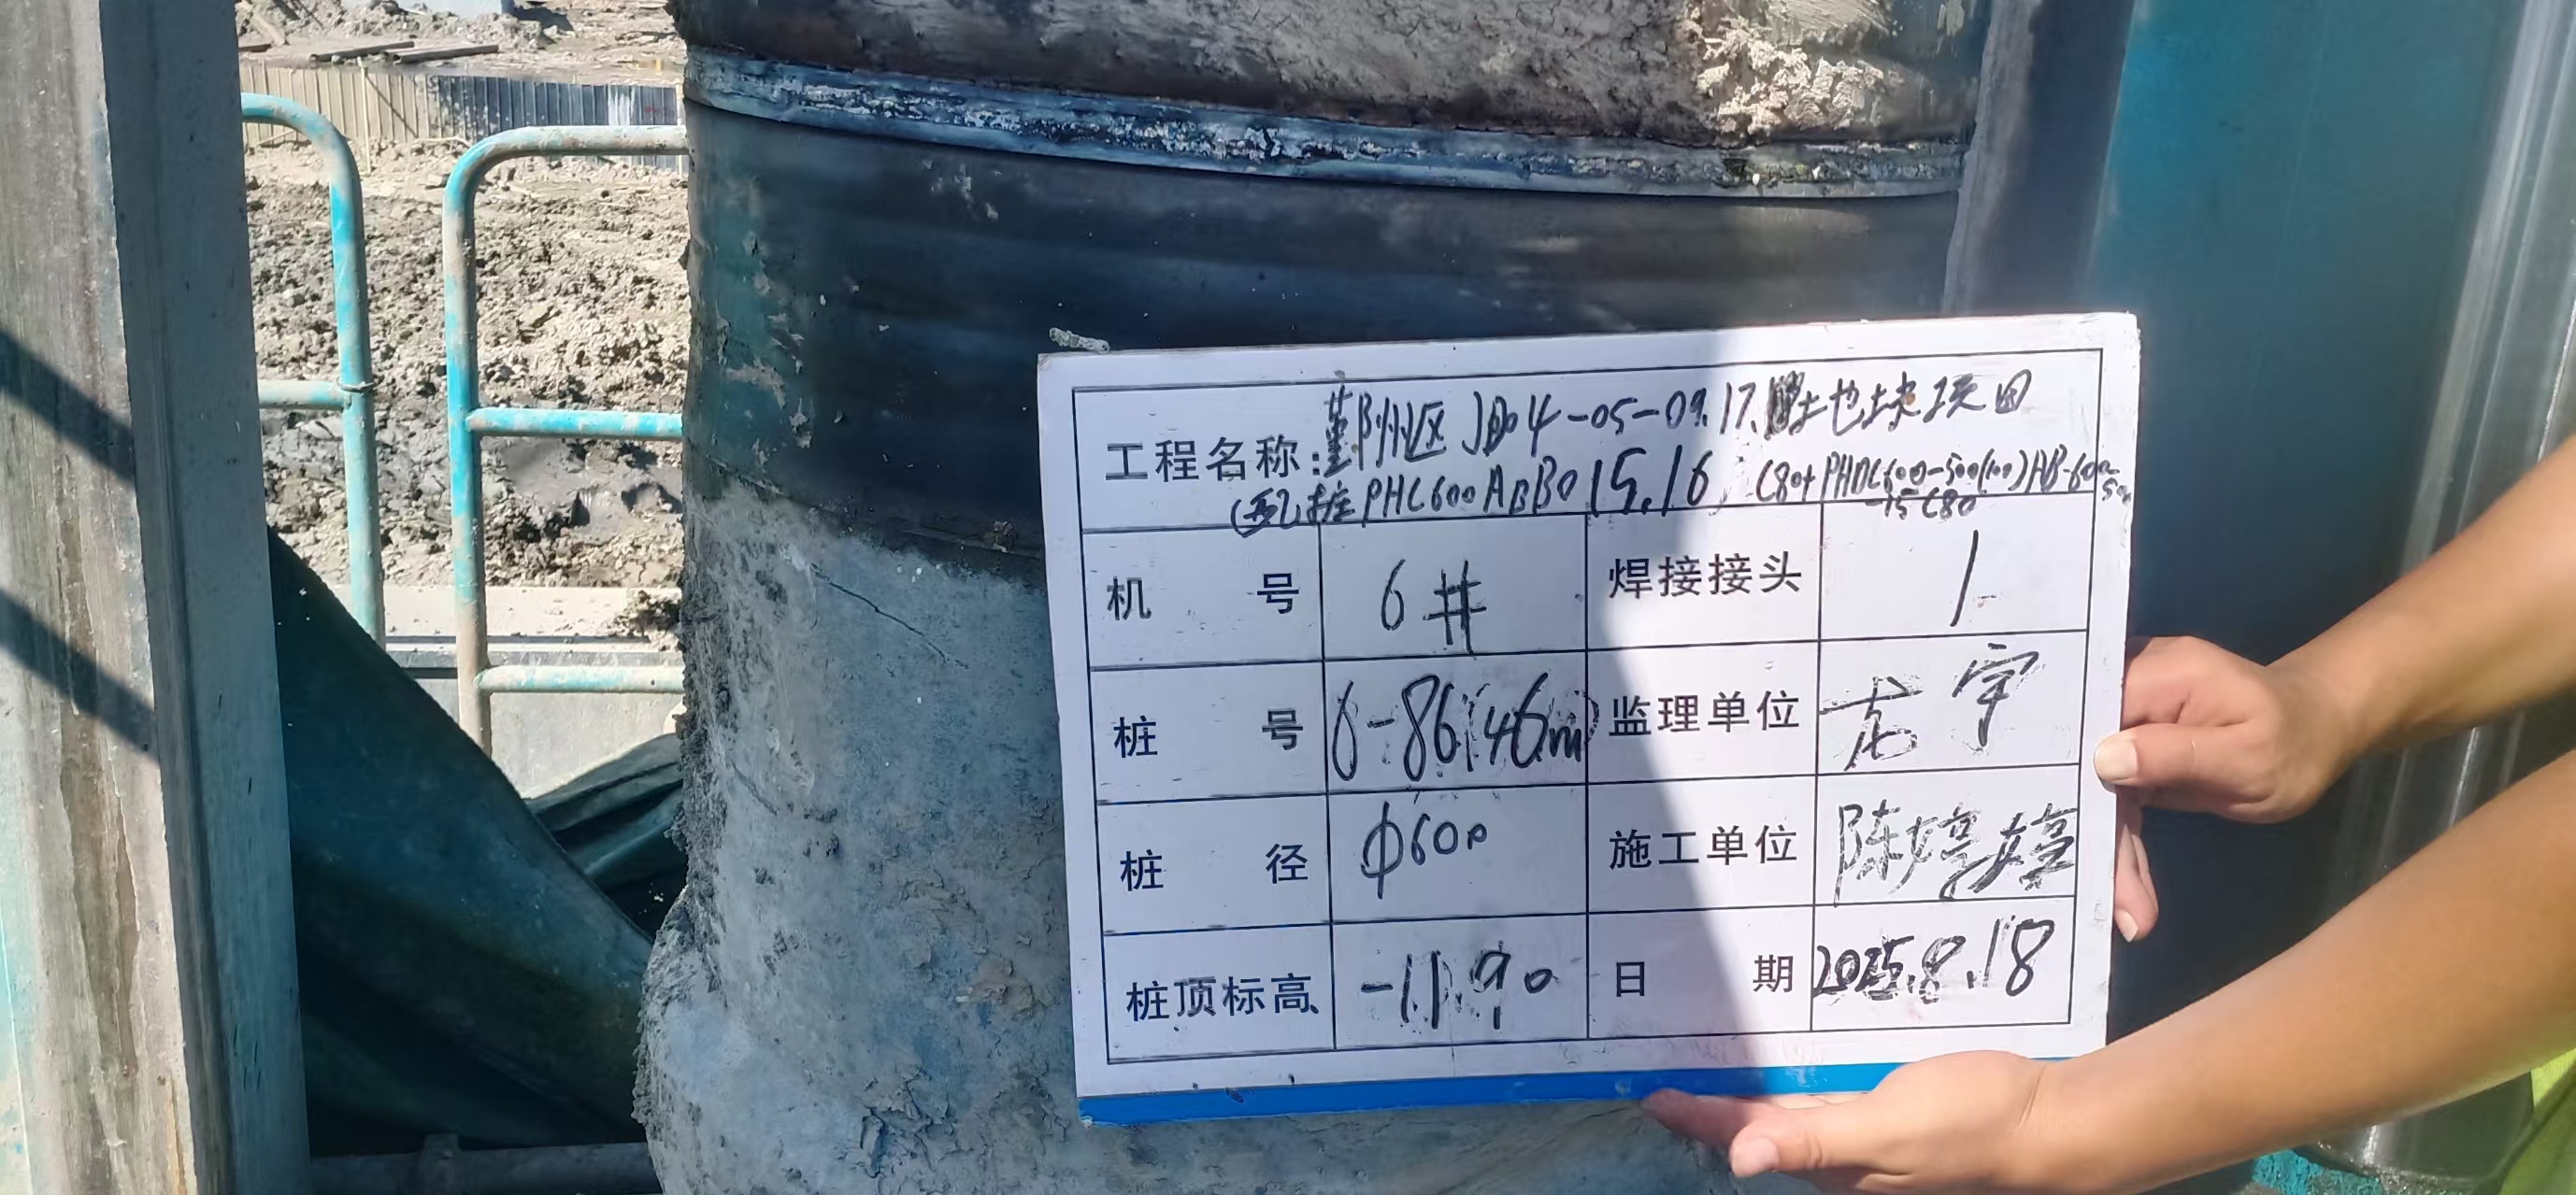 工程名称：鄞州区JD04-05-09.17.地块项目
PHC600AB130 15.16 C80+PHDC600-500(100)AB-600-500
-15 C80
机号 6# 焊接接头 1
桩号 6-86(46m) 监理单位 宇
桩径 φ600 施工单位 陈婷婷
桩顶标高 -11.90 日期 2025.8.18